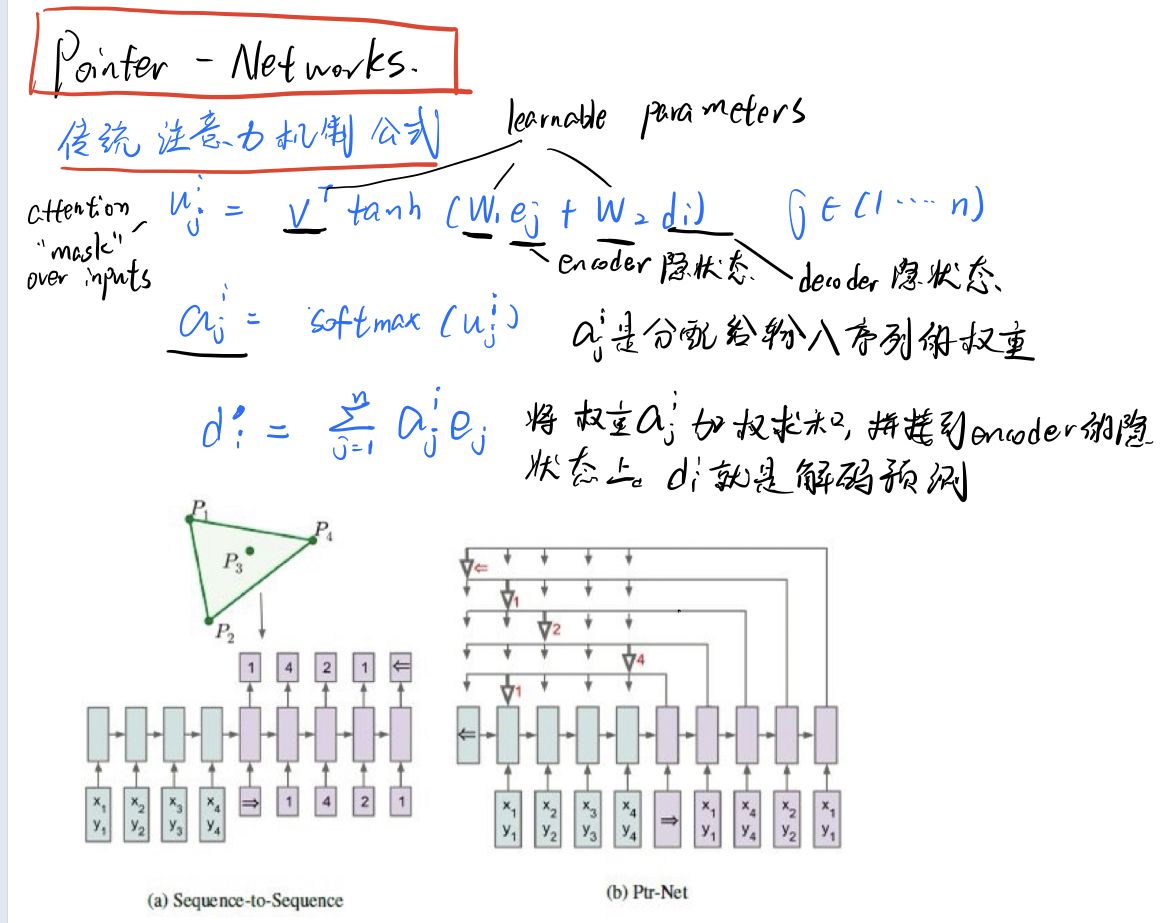 Pointer - Networks.
传统 注意力机制 公式
learnable parameters
attention "mask" over inputs
u_j^i = v^T tanh (W_1 e_j + W_2 d_i) j ∈ (1 ···· n)
encoder 隐状态.
decoder 隐状态、
a_j^i = softmax (u_j^i)
a_j^i 是分配给输入序列的权重
d_i' = Σ_{j=1}^{n} a_j^i e_j
将 权重 a_j^i 加权求和, 拼接到 encoder 的隐
状态上。 d_i' 就是解码预测
P1
P4
P3
P2
1 4 2 1 ⇐
x1 y1 x2 y2 x3 y3 x4 y4 ⇒ 1 4 2 1
(a) Sequence-to-Sequence
⇐
1
2
4
1
⇐
x1 y1 x2 y2 x3 y3 x4 y4 ⇒ x1 y1 x4 y4 x2 y2 x1 y1
(b) Ptr-Net